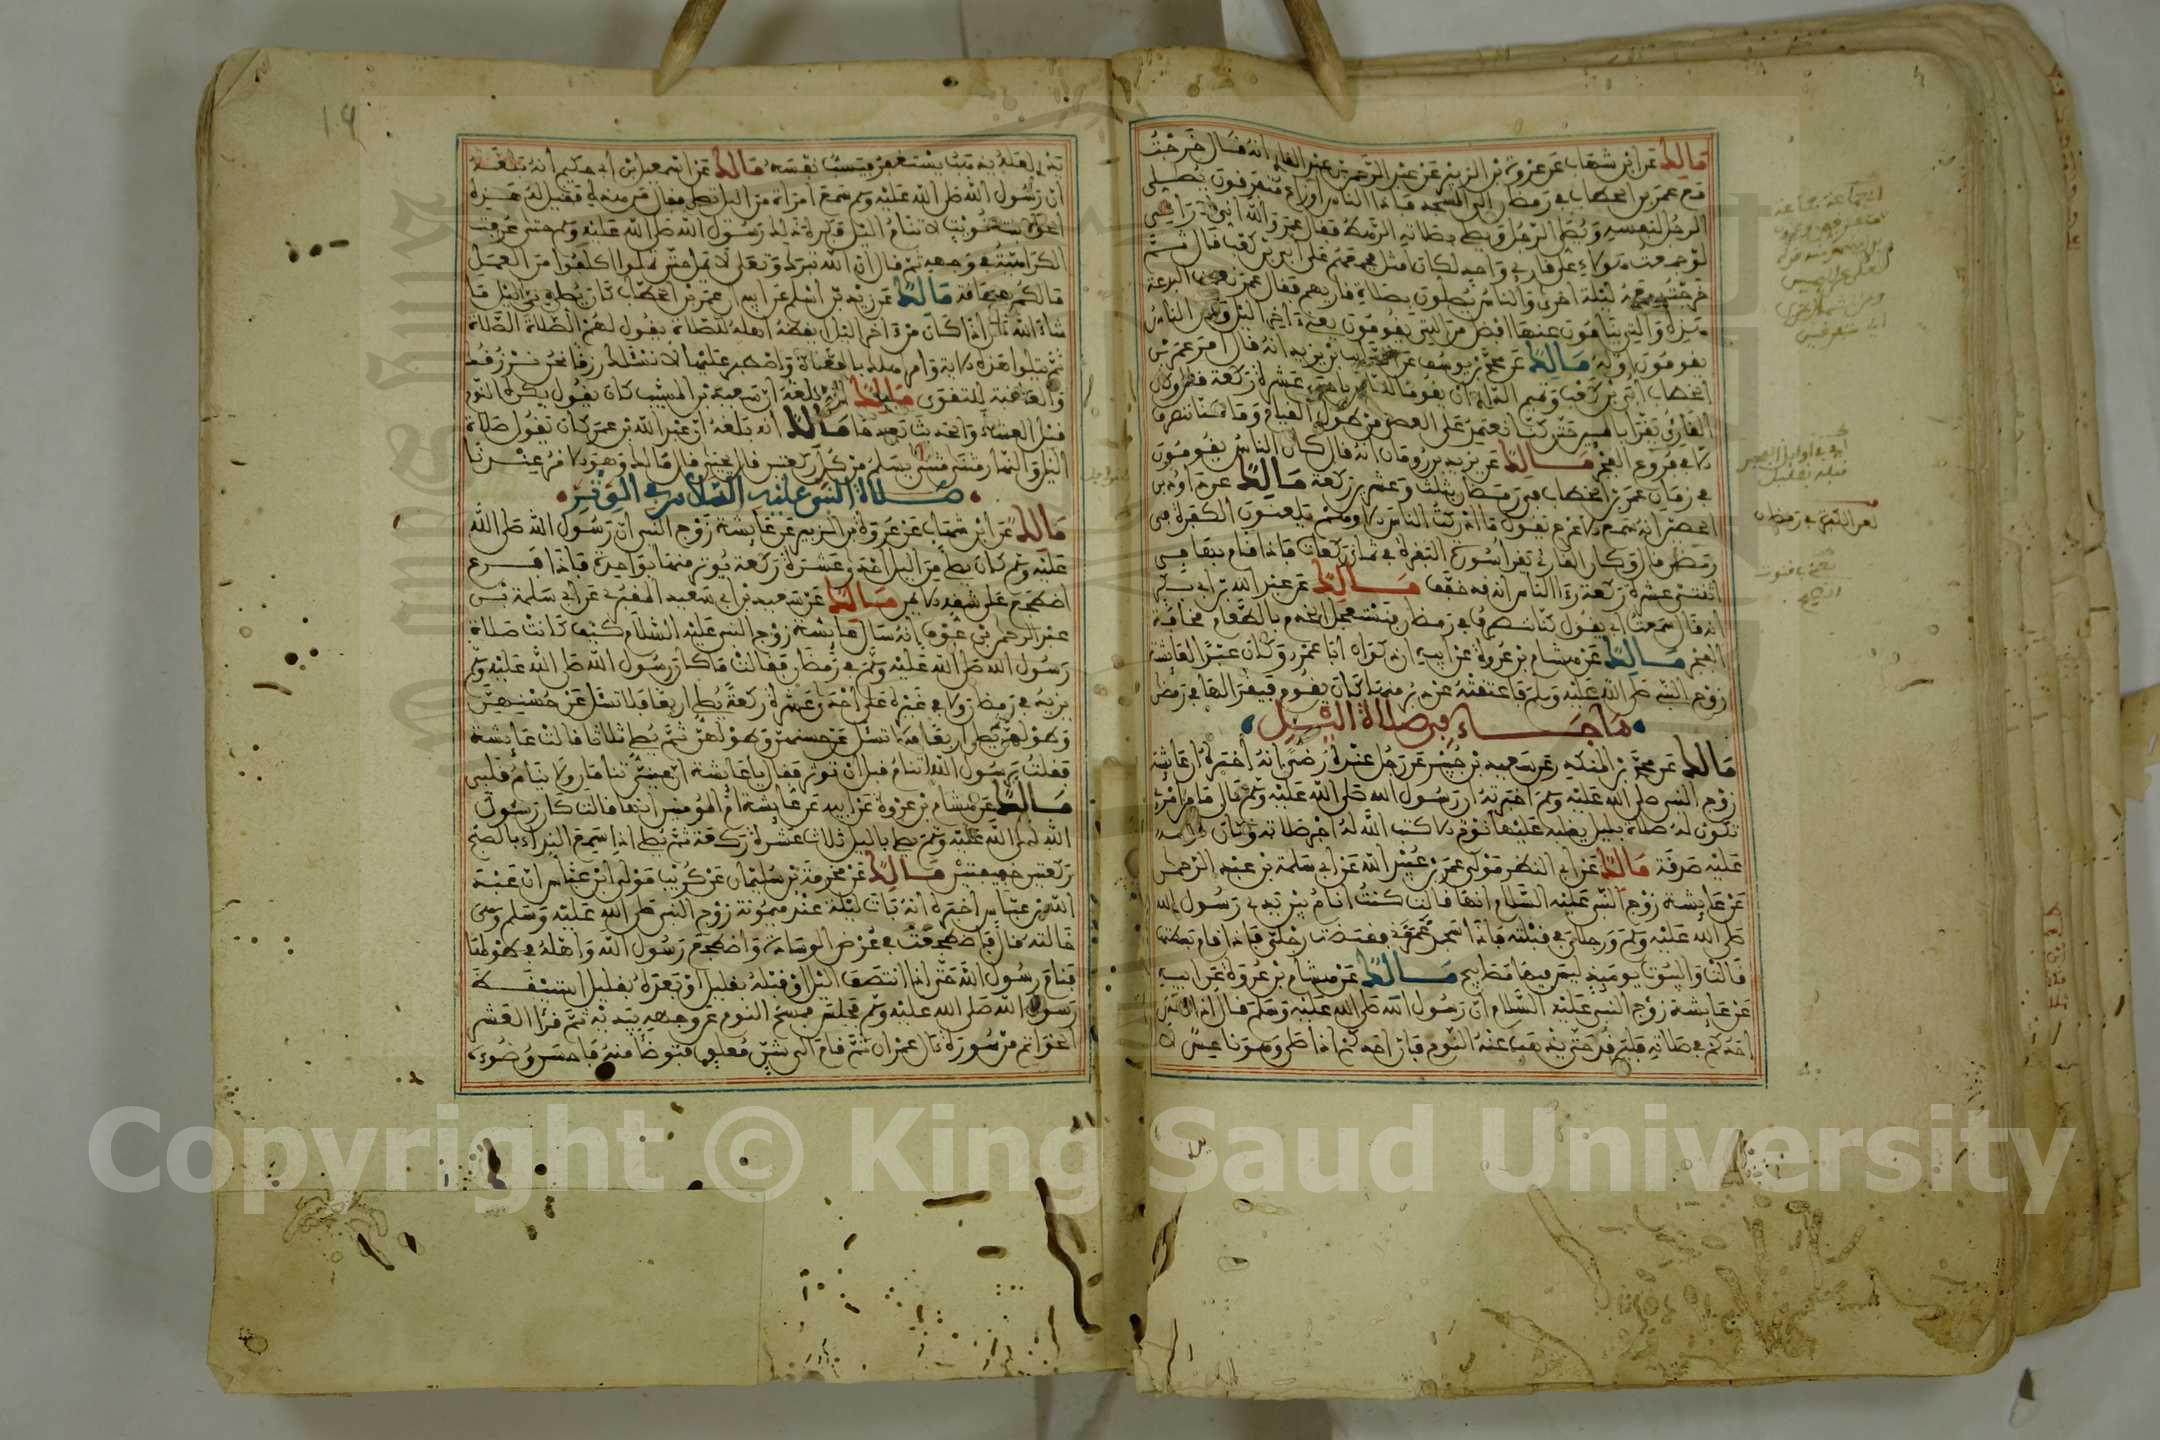 مالك عن ابن شهاب عن عروة بن الزبير عن عبد الرحمن بن عبد القاري انه قال خرجت
مع عمر بن الخطاب في رمضان الى المسجد فاذا الناس اوزاع متفرقون يصلي
الرجل لنفسه ويصلي الرجل ويصلي بصلاته الرهط فقال عمر والله اني لاراني
لو جمعت هؤلاء على قاري واحد لكان امثل فجمعهم على ابي بن كعب قال ثم
خرجت معه ليلة اخرى والناس يصلون بصلاة قاريهم فقال عمر نعمت البدعة
هذه والتي ينامون عنها افضل من التي يقومون يعني اخر الليل وكان الناس
يقومون اوله مالك عن محمد بن يوسف عن السائب بن يزيد انه قال امر عمر بن
الخطاب ابي بن كعب وتميم الداري ان يقوما للناس باحدى عشرة ركعة قال وكان
القارئ يقرا بالميين حتى كنا نعتمد على العصي من طول القيام وما كنا ننصرف
الا في فروع الفجر مالك عن يزيد بن رومان انه قال كان الناس يقومون
في زمان عمر بن الخطاب في رمضان بثلاث وعشرين ركعة مالك عن داود بن
الحصين انه سمع الاعرج يقول ما ادركت الناس الا وهم يلعنون الكفرة في
رمضان قال وكان القارئ يقرا سورة البقرة في ثماني ركعات فاذا قام بها في
اثنتي عشرة ركعة راى الناس انه قد خفف مالك عن عبد الله بن ابي بكر
انه قال سمعت ابي يقول كنا ننصرف في رمضان فنستعجل الخدم بالطعام مخافة
الفجر مالك عن هشام بن عروة عن ابيه ان ذكوان ابا عمرو وكان عبدا لعائشة
زوج النبي صلى الله عليه وسلم فاعتقته عن دبر منها كان يقوم فيقرا لها في رمضان
ما جاء في صلاة الليل
مالك عن محمد بن المنكدر عن سعيد بن جبير عن رجل عنده رضى انه اخبره ان عائشة
زوج النبي صلى الله عليه وسلم اخبرته ان رسول الله صلى الله عليه وسلم قال ما من امرئ
تكون له صلاة بليل يغلبه عليها نوم الا كتب الله له اجر صلاته وكان نومه
عليه صدقة مالك عن ابي النضر مولى عمر بن عبيد الله عن ابي سلمة بن عبد الرحمن
عن عائشة زوج النبي عليه السلام انها قالت كنت انام بين يدي رسول الله
صلى الله عليه وسلم ورجلاي في قبلته فاذا سجد غمزني فقبضت رجلي فاذا قام بسطتهما
قالت والبيوت يوميذ ليس فيها مصابيح مالك عن هشام بن عروة عن ابيه
عن عائشة زوج النبي عليه السلام ان رسول الله صلى الله عليه وسلم قال اذا نعس
احدكم في صلاته فليرقد حتى يذهب عنه النوم فان احدكم اذا صلى وهو ناعس لا
يدري لعله يذهب يستغفر فيسب نفسه مالك عن اسمعيل بن ابي حكيم انه بلغه
ان رسول الله صلى الله عليه وسلم سمع امراة من الليل تصلي فقال من هذه فقيل له هذه
الحولاء بنت تويت لا تنام الليل فكره ذلك رسول الله صلى الله عليه وسلم حتى عرفت
الكراهية في وجهه ثم قال ان الله تبارك وتعلى لا يمل حتى تملوا اكلفوا من العمل
ما لكم به طاقة مالك عن زيد بن اسلم عن ابيه ان عمر بن الخطاب كان يصلي من الليل ما
شاء الله حتى اذا كان من اخر الليل ايقظ اهله للصلاة يقول لهم الصلاة الصلاة
ثم يتلوا هذه الاية وامر اهلك بالصلاة واصطبر عليها لا نسئلك رزقا نحن نرزقك
والعاقبة للتقوى مالك انه بلغه ان سعيد بن المسيب كان يقول يكره النوم
قبل العشاء والحديث بعدها مالك انه بلغه ان عبد الله بن عمر كان يقول صلاة
الليل والنهار مثنى مثنى يسلم من كل ركعتين قال يحيى قال مالك وهو الامر عندنا
صلاة النبي عليه السلام في الوتر
مالك عن ابن شهاب عن عروة بن الزبير عن عائشة زوج النبي ان رسول الله صلى الله
عليه وسلم كان يصلي من الليل احدى عشرة ركعة يوتر منها بواحدة فاذا فرغ
اضطجع على شقه الايمن مالك عن سعيد بن ابي سعيد المقبري عن ابي سلمة بن
عبد الرحمن بن عوف انه سال عائشة زوج النبي عليه السلام كيف كانت صلاة
رسول الله صلى الله عليه وسلم في رمضان فقالت ما كان رسول الله صلى الله عليه وسلم
يزيد في رمضان ولا في غيره على احدى عشرة ركعة يصلي اربعا فلا تسئل عن حسنهن
وطولهن ثم يصلي اربعا فلا تسئل عن حسنهن وطولهن ثم يصلي ثلاثا قالت عائشة
فقلت يرسول الله اتنام قبل ان توتر فقال يا عائشة ان عيني تنامان ولا ينام قلبي
مالك عن هشام بن عروة عن ابيه عن عائشة ام المومنين انها قالت كان رسول
الله صلى الله عليه وسلم يصلي بالليل ثلاث عشرة ركعة ثم يصلي اذا سمع النداء بالصبح
ركعتين خفيفتين مالك عن مخرمة بن سليمان عن كريب مولى ابن عباس ان عبد
الله بن عباس اخبره انه بات ليلة عند ميمونة زوج النبي صلى الله عليه وسلم وهي
خالته قال فاضطجعت في عرض الوسادة واضطجع رسول الله واهله في طولها
فنام رسول الله حتى اذا انتصف الليل او قبله بقليل او بعده بقليل استيقظ
رسول الله صلى الله عليه وسلم فجلس يمسح النوم عن وجهه بيده ثم قرا العشر
الخواتم من سورة ال عمران ثم قام الى شن معلق فتوضا منه فاحسن وضوءه
١٩
Copyright © King Saud University